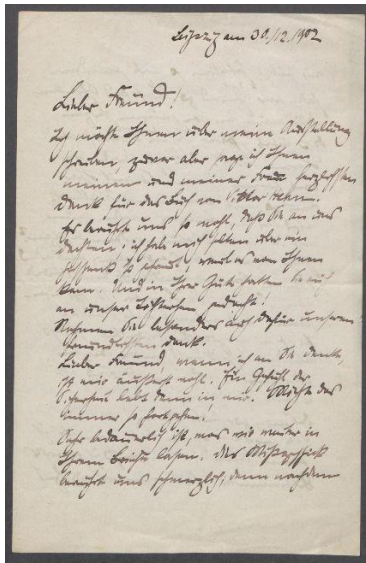 Leipzig am 30./12.1902
Lieber Freund!
Ich möchte Ihnen über meine Ausstellung
schreiben, zuvor aber sage ich Ihnen
meinen und meiner Frau herzlichsten
Dank für das Buch von Viktor Hehn.
Es berührte uns so wohl, daß Sie an uns
dachten, ich habe mich selten über ein
Geschenk so gefreut, weil es von Ihnen
kam. Und in Ihrer Güte hatten Sie auch
an unser Töchterchen gedacht!
Nehmen Sie besonders auch dafür unseren
freundlichsten Dank.
Lieber Freund, wenn ich an Sie denke,
ist mir äußerst wohl. Ein Gefühl der
lebt dann in mir! Möchte das
immer so fortgehen!
Sehr bedauerlich ist, was wir weiter in
Ihrem Briefe lasen. Das Mißgeschick
berührt uns schmerzlich, denn nachdem